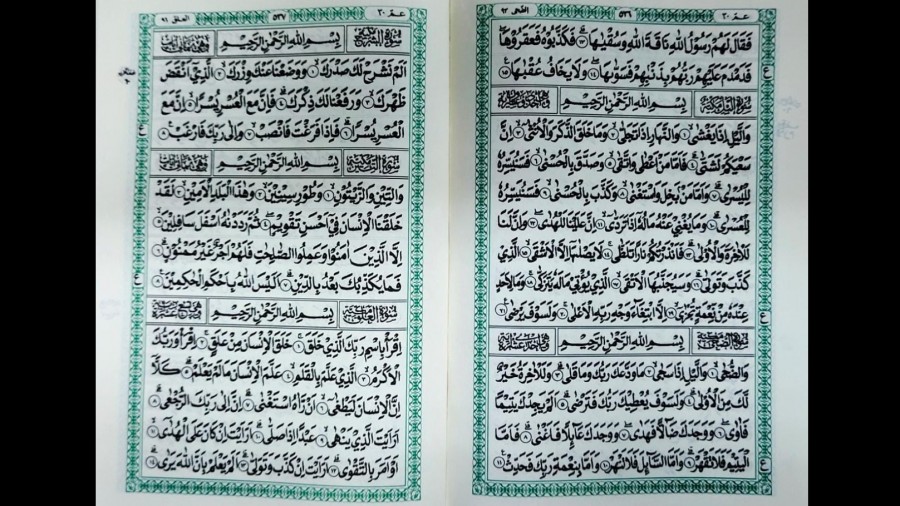 عمّ ٣٠
٥٣٦
الضحى ٩٣
فَقَالَ لَهُمْ رَسُوْلُ اللّٰهِ نَاقَةَ اللّٰهِ وَسُقْيٰهَا ١٣ فَكَذَّبُوْهُ فَعَقَرُوْهَا
فَدَمْدَمَ عَلَيْهِمْ رَبُّهُمْ بِذَنْبِهِمْ فَسَوّٰىهَا ١٤ وَلَا يَخَافُ عُقْبٰهَا ١٥
بِسْمِ اللّٰهِ الرَّحْمٰنِ الرَّحِيْمِ
وَالَّيْلِ اِذَا يَغْشٰى ١ وَالنَّهَارِ اِذَا تَجَلّٰى ٢ وَمَا خَلَقَ الذَّكَرَ وَالْاُنْثٰى ٣ اِنَّ
سَعْيَكُمْ لَشَتّٰى ٤ فَاَمَّا مَنْ اَعْطٰى وَاتَّقٰى ٥ وَصَدَّقَ بِالْحُسْنٰى ٦ فَسَنُيَسِّرُهٗ
لِلْيُسْرٰى ٧ وَاَمَّا مَنْ بَخِلَ وَاسْتَغْنٰى ٨ وَكَذَّبَ بِالْحُسْنٰى ٩ فَسَنُيَسِّرُهٗ
لِلْعُسْرٰى ١٠ وَمَا يُغْنِيْ عَنْهُ مَالُهٗٓ اِذَا تَرَدّٰى ١١ اِنَّ عَلَيْنَا لَلْهُدٰى ١٢ وَاِنَّ لَنَا
لَلْاٰخِرَةَ وَالْاُوْلٰى ١٣ فَاَنْذَرْتُكُمْ نَارًا تَلَظّٰى ١٤ لَا يَصْلٰىهَآ اِلَّا الْاَشْقَى ١٥ الَّذِيْ
كَذَّبَ وَتَوَلّٰى ١٦ وَسَيُجَنَّبُهَا الْاَتْقَى ١٧ الَّذِيْ يُؤْتِيْ مَالَهٗ يَتَزَكّٰى ١٨ وَمَا لِاَحَدٍ
عِنْدَهٗ مِنْ نِّعْمَةٍ تُجْزٰٓى ١٩ اِلَّا ابْتِغَآءَ وَجْهِ رَبِّهِ الْاَعْلٰى ٢٠ وَلَسَوْفَ يَرْضٰى ٢١
بِسْمِ اللّٰهِ الرَّحْمٰنِ الرَّحِيْمِ
وَالضُّحٰى ١ وَالَّيْلِ اِذَا سَجٰى ٢ مَا وَدَّعَكَ رَبُّكَ وَمَا قَلٰى ٣ وَلَلْاٰخِرَةُ خَيْرٌ
لَّكَ مِنَ الْاُوْلٰى ٤ وَلَسَوْفَ يُعْطِيْكَ رَبُّكَ فَتَرْضٰى ٥ اَلَمْ يَجِدْكَ يَتِيْمًا
فَاٰوٰى ٦ وَوَجَدَكَ ضَآلًّا فَهَدٰى ٧ وَوَجَدَكَ عَآئِلًا فَاَغْنٰى ٨ فَاَمَّا
الْيَتِيْمَ فَلَا تَقْهَرْ ٩ وَاَمَّا السَّآئِلَ فَلَا تَنْهَرْ ١٠ وَاَمَّا بِنِعْمَةِ رَبِّكَ فَحَدِّثْ ١١
عمّ ٣٠
٥٣٧
العلق ٩٦
بِسْمِ اللّٰهِ الرَّحْمٰنِ الرَّحِيْمِ
اَلَمْ نَشْرَحْ لَكَ صَدْرَكَ ١ وَوَضَعْنَا عَنْكَ وِزْرَكَ ٢ الَّذِيْٓ اَنْقَضَ
ظَهْرَكَ ٣ وَرَفَعْنَا لَكَ ذِكْرَكَ ٤ فَاِنَّ مَعَ الْعُسْرِ يُسْرًا ٥ اِنَّ مَعَ
الْعُسْرِ يُسْرًا ٦ فَاِذَا فَرَغْتَ فَانْصَبْ ٧ وَاِلٰى رَبِّكَ فَارْغَبْ ٨
بِسْمِ اللّٰهِ الرَّحْمٰنِ الرَّحِيْمِ
وَالتِّيْنِ وَالزَّيْتُوْنِ ١ وَطُوْرِ سِيْنِيْنَ ٢ وَهٰذَا الْبَلَدِ الْاَمِيْنِ ٣ لَقَدْ
خَلَقْنَا الْاِنْسَانَ فِيْٓ اَحْسَنِ تَقْوِيْمٍ ٤ ثُمَّ رَدَدْنٰهُ اَسْفَلَ سَافِلِيْنَ ٥
اِلَّا الَّذِيْنَ اٰمَنُوْا وَعَمِلُوا الصّٰلِحٰتِ فَلَهُمْ اَجْرٌ غَيْرُ مَمْنُوْنٍ ٦
فَمَا يُكَذِّبُكَ بَعْدُ بِالدِّيْنِ ٧ اَلَيْسَ اللّٰهُ بِاَحْكَمِ الْحٰكِمِيْنَ ٨
بِسْمِ اللّٰهِ الرَّحْمٰنِ الرَّحِيْمِ
اِقْرَأْ بِاسْمِ رَبِّكَ الَّذِيْ خَلَقَ ١ خَلَقَ الْاِنْسَانَ مِنْ عَلَقٍ ٢ اِقْرَأْ وَرَبُّكَ
الْاَكْرَمُ ٣ الَّذِيْ عَلَّمَ بِالْقَلَمِ ٤ عَلَّمَ الْاِنْسَانَ مَا لَمْ يَعْلَمْ ٥ كَلَّآ
اِنَّ الْاِنْسَانَ لَيَطْغٰٓى ٦ اَنْ رَّاٰهُ اسْتَغْنٰى ٧ اِنَّ اِلٰى رَبِّكَ الرُّجْعٰى ٨
اَرَاَيْتَ الَّذِيْ يَنْهٰى ٩ عَبْدًا اِذَا صَلّٰى ١٠ اَرَاَيْتَ اِنْ كَانَ عَلَى الْهُدٰٓى ١١
اَوْ اَمَرَ بِالتَّقْوٰى ١٢ اَرَاَيْتَ اِنْ كَذَّبَ وَتَوَلّٰى ١٣ اَلَمْ يَعْلَمْ بِاَنَّ اللّٰهَ يَرٰى ١٤